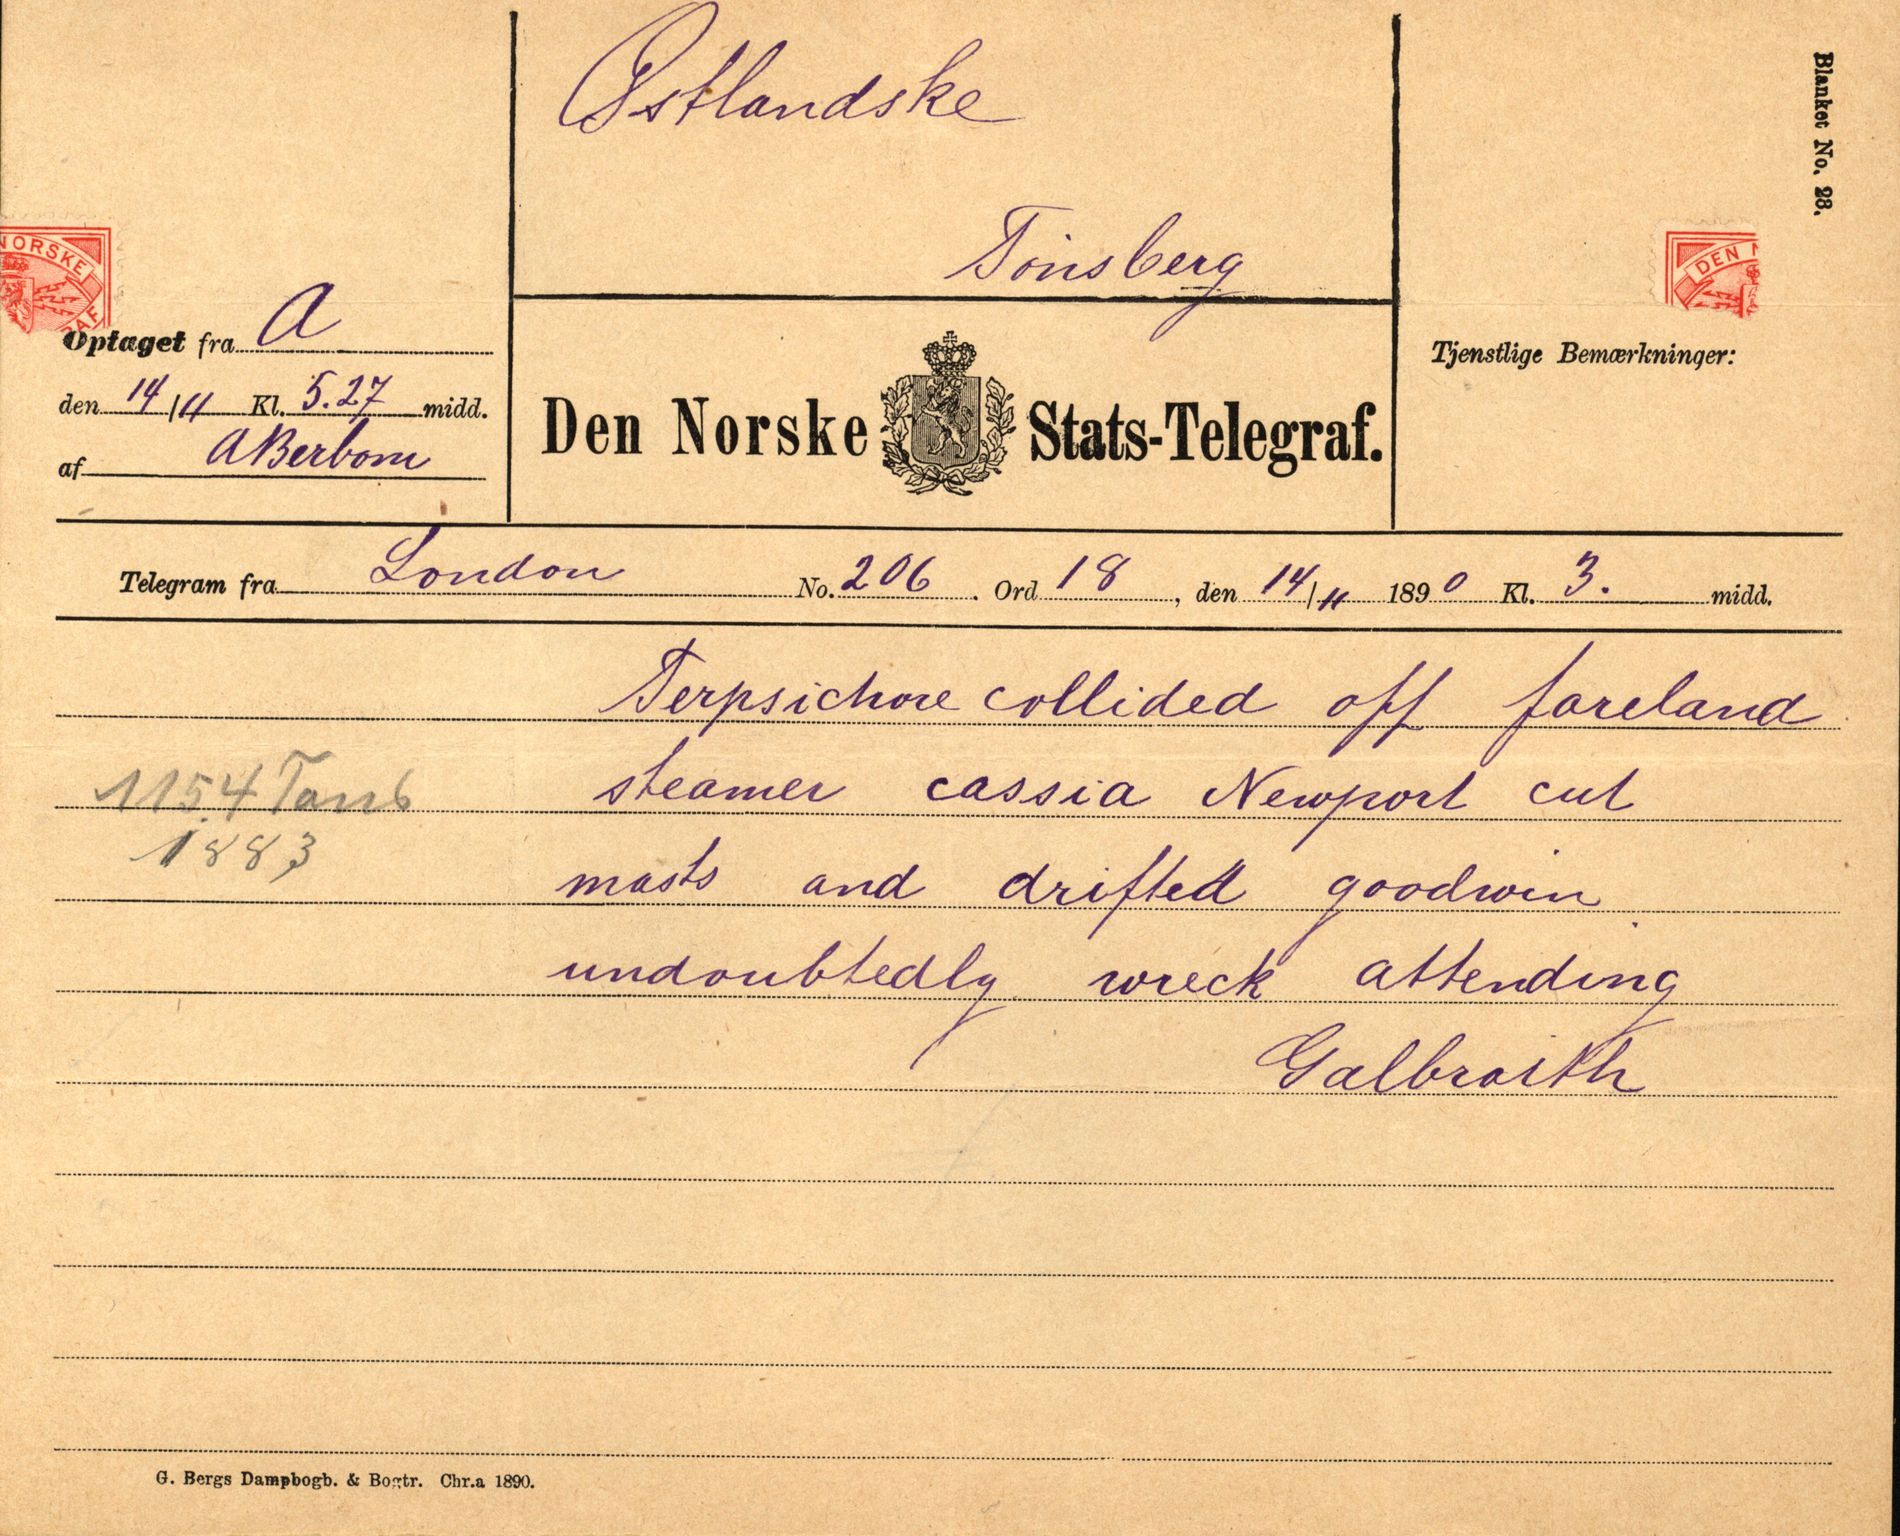 Østlandske
Tönsberg
Blanket No. 28.
NORSKE
RAF
DEN N
Optaget fra A
den 14/11 Kl. 5.27 midd.
af ABerbom
Den Norske Stats-Telegraf.
Tjenstlige Bemærkninger:
Telegram fra London No. 206. Ord 18, den 14/11 1890 Kl. 3. midd.
Terpsichore collided off foreland
steamer cassia Newport cut
masts and drifted goodwin
undoubtedly wreck attending
Galbraith
1154 Tons
1883
G. Bergs Dampbogb. & Bogtr. Chr.a 1890.